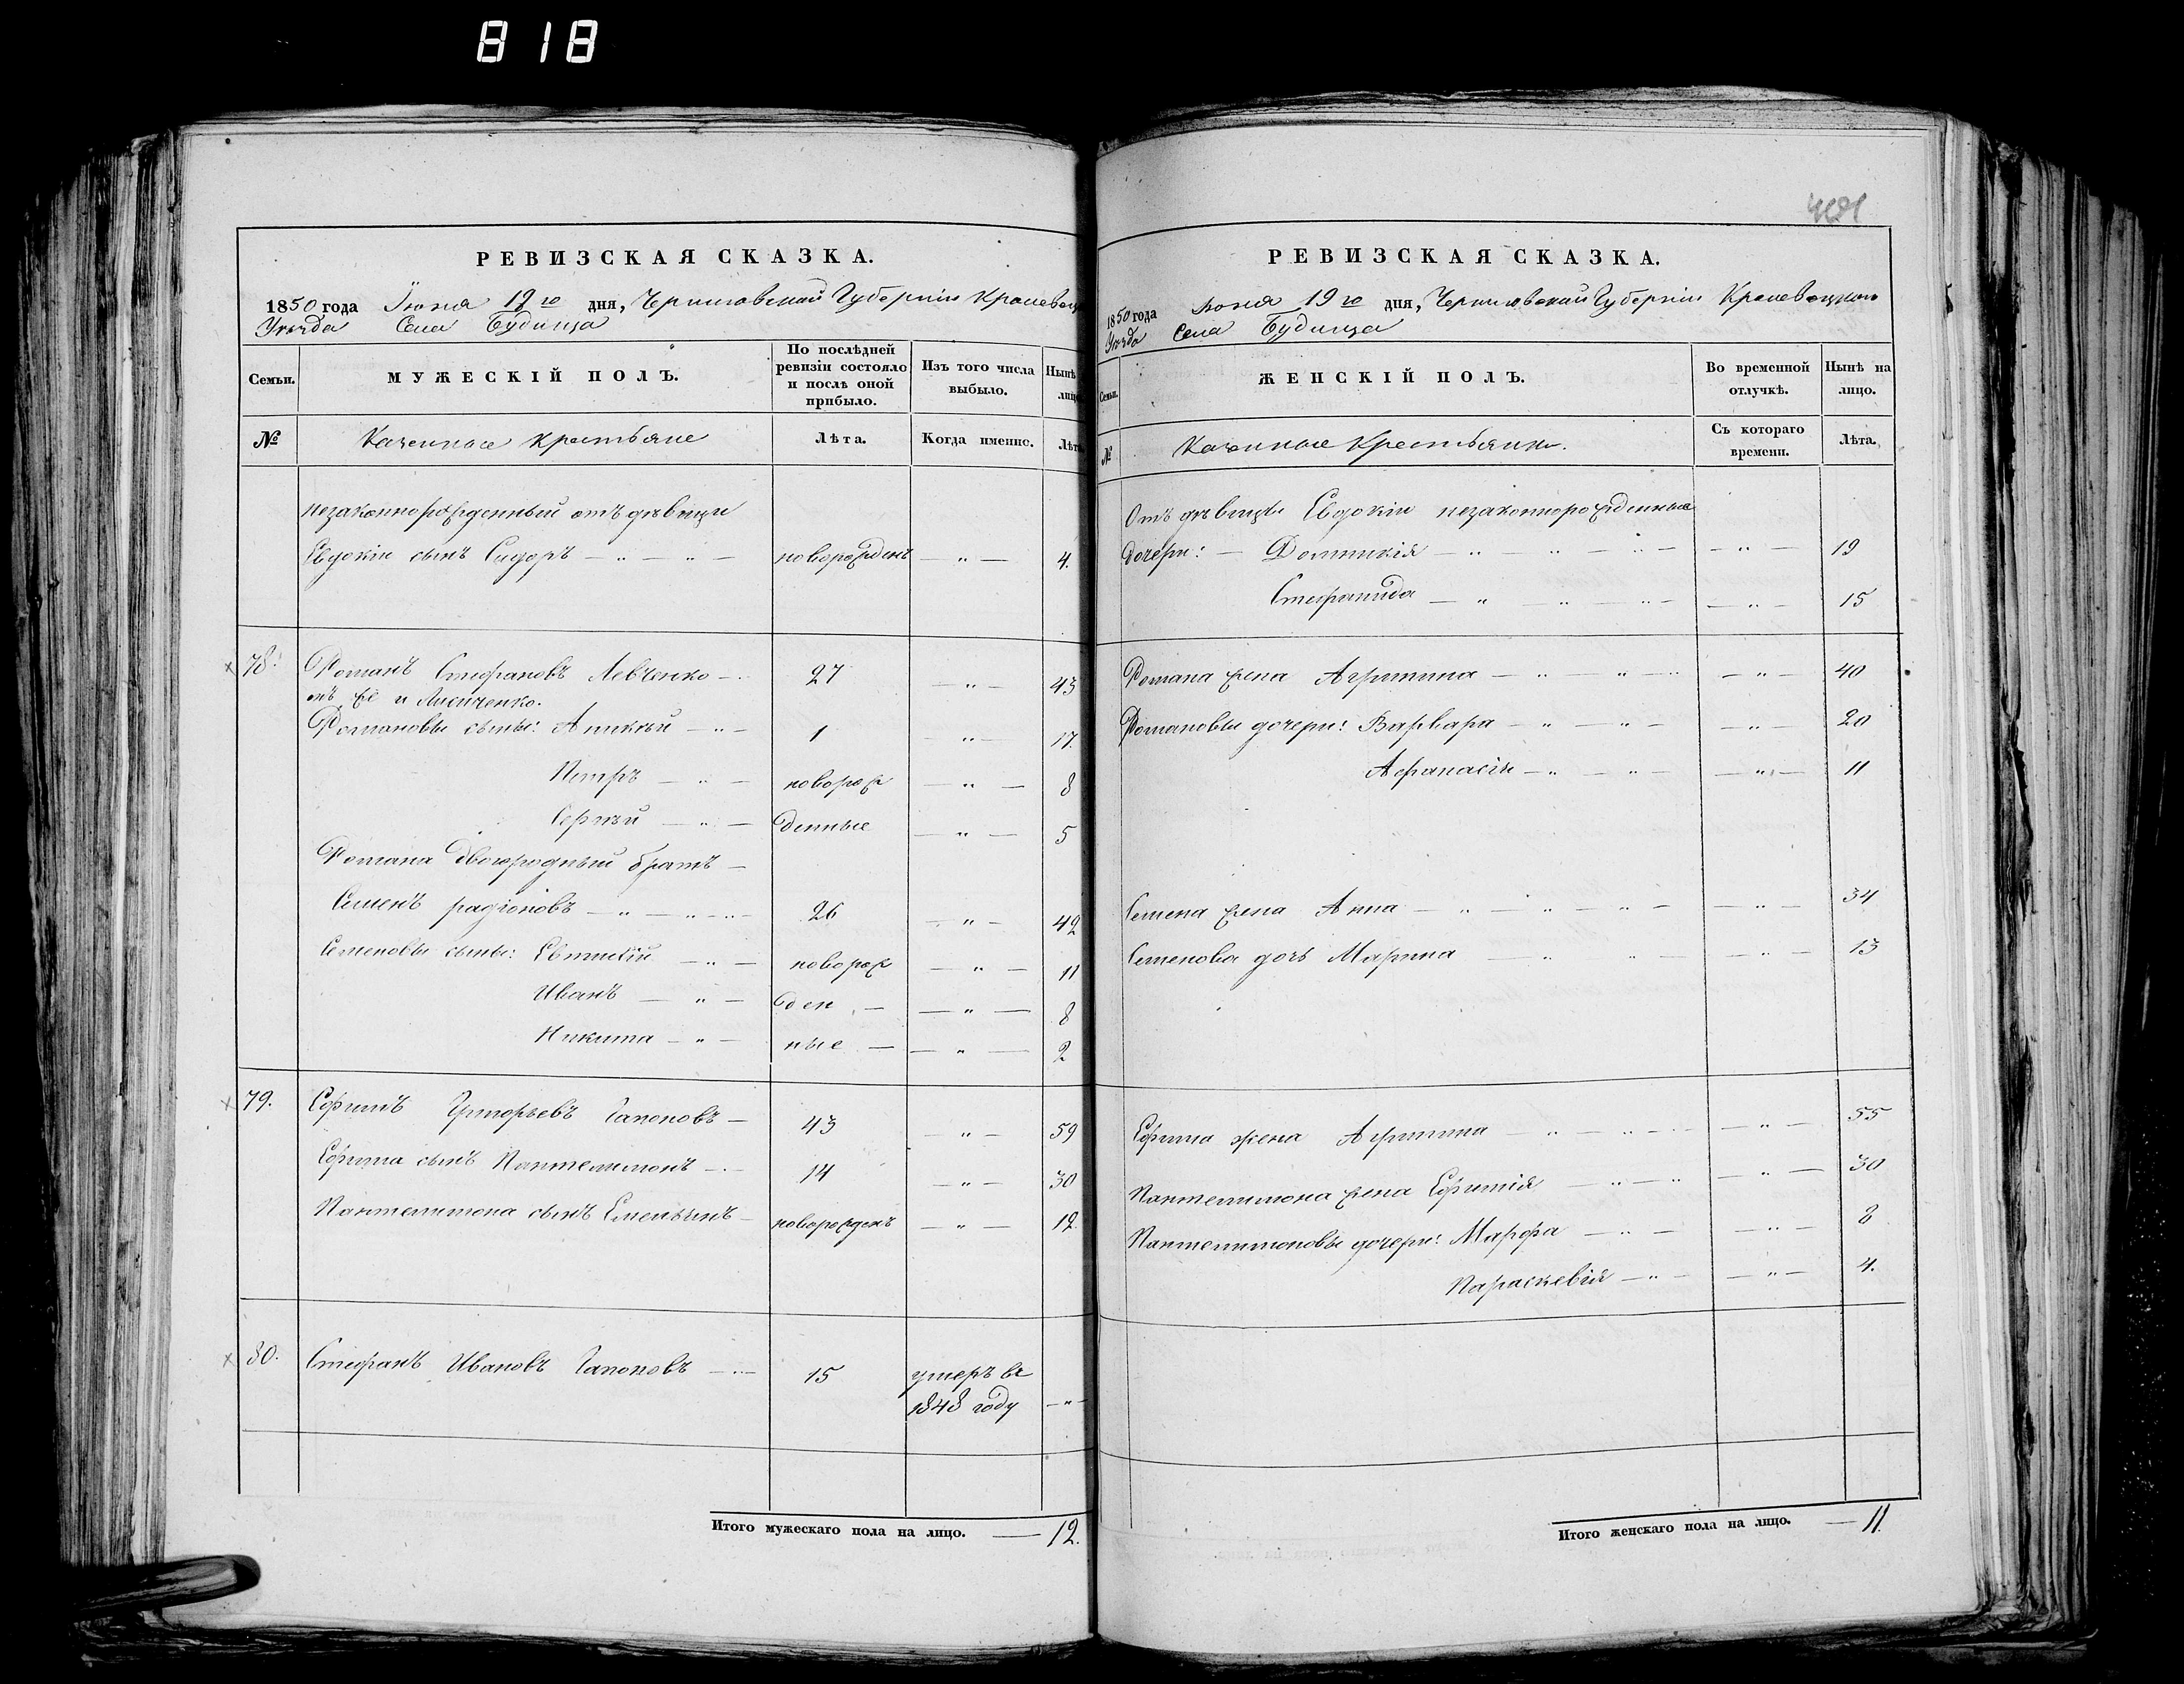 818
РЕВИЗСКАЯ СКАЗКА.
1850 года Іюня 19го дня, Черниговской Губерніи Кролевец
Уѣзда Села Будища
Семьи.
МУЖЕСКІЙ ПОЛЪ.
По послѣдней ревизіи состояло и послѣ оной прибыло.
Изъ того числа выбыло.
Нынѣ лицо
№
Казенные крестьяне
Лѣта.
Когда именно.
Лѣта
незаконнорожденный отъ дѣвицы
Евдокіи сынъ Сидоръ — „ — „ — новорожденъ — „ — 4.
78. Романъ Стефановъ Левченко — 27 — „ — 43
онъ же и Лисиченко.
Романовы сыны: Аникій — „ — 1 — „ — 17.
Петръ — „ — новорож — „ — 8
Сергѣй — „ — денные — „ — 5
Романа двоюродный братъ —
Семенъ радіоновъ — „ — „ — 26 — „ — 42
Семеновы сыны: Евтихій — „ — новорож — „ — 11
Иванъ — „ — ден — — „ — 8
Никита — „ — ные — — „ — 2
79. Ефимъ Григорьевъ Гапоновъ — 43 — „ — 59
Ефима сынъ Пантелимонъ — 14 — „ — 30
Пантелимона сынъ Емельянъ — новорожденъ — „ — 12
80. Стефанъ Ивановъ Гапоновъ — 15 умеръ въ
1848 году — „ —
Итого мужескаго пола на лицо. — 12.
РЕВИЗСКАЯ СКАЗКА.
1850 года Іюня 19го дня, Черниговской Губерніи Кролевецкого
Уѣзда Села Будища
Семьи.
ЖЕНСКІЙ ПОЛЪ.
Во временной отлучкѣ.
Нынѣ на лицо.
№
Казенные Крестьянки.
Съ котораго времени.
Лѣта.
Отъ дѣвицы Евдокіи незаконнорожденные
дочери: — Домникія — „ — „ — „ — — „ — 19
Стефанида — „ — „ — „ — — „ — 15
Романа жена Агрипина — „ „ — — „ — 40
Романовы дочери: Варвара — „ — „ — — „ — 20
Афанасія — „ — „ — — „ — 11
Семена жена Анна — „ — „ — „ — — „ — 34
Семенова дочь Марина — „ „ — — „ — 13
Ефима жена Агрипина — „ — „ — — „ — 55
Пантелимона жена Ефимія — „ — „ — „ — 30
Пантелимоновы дочери: Марфа — „ — — „ — 8
Параскевія — „ — — „ — 4.
Итого женскаго пола на лицо. — 11.